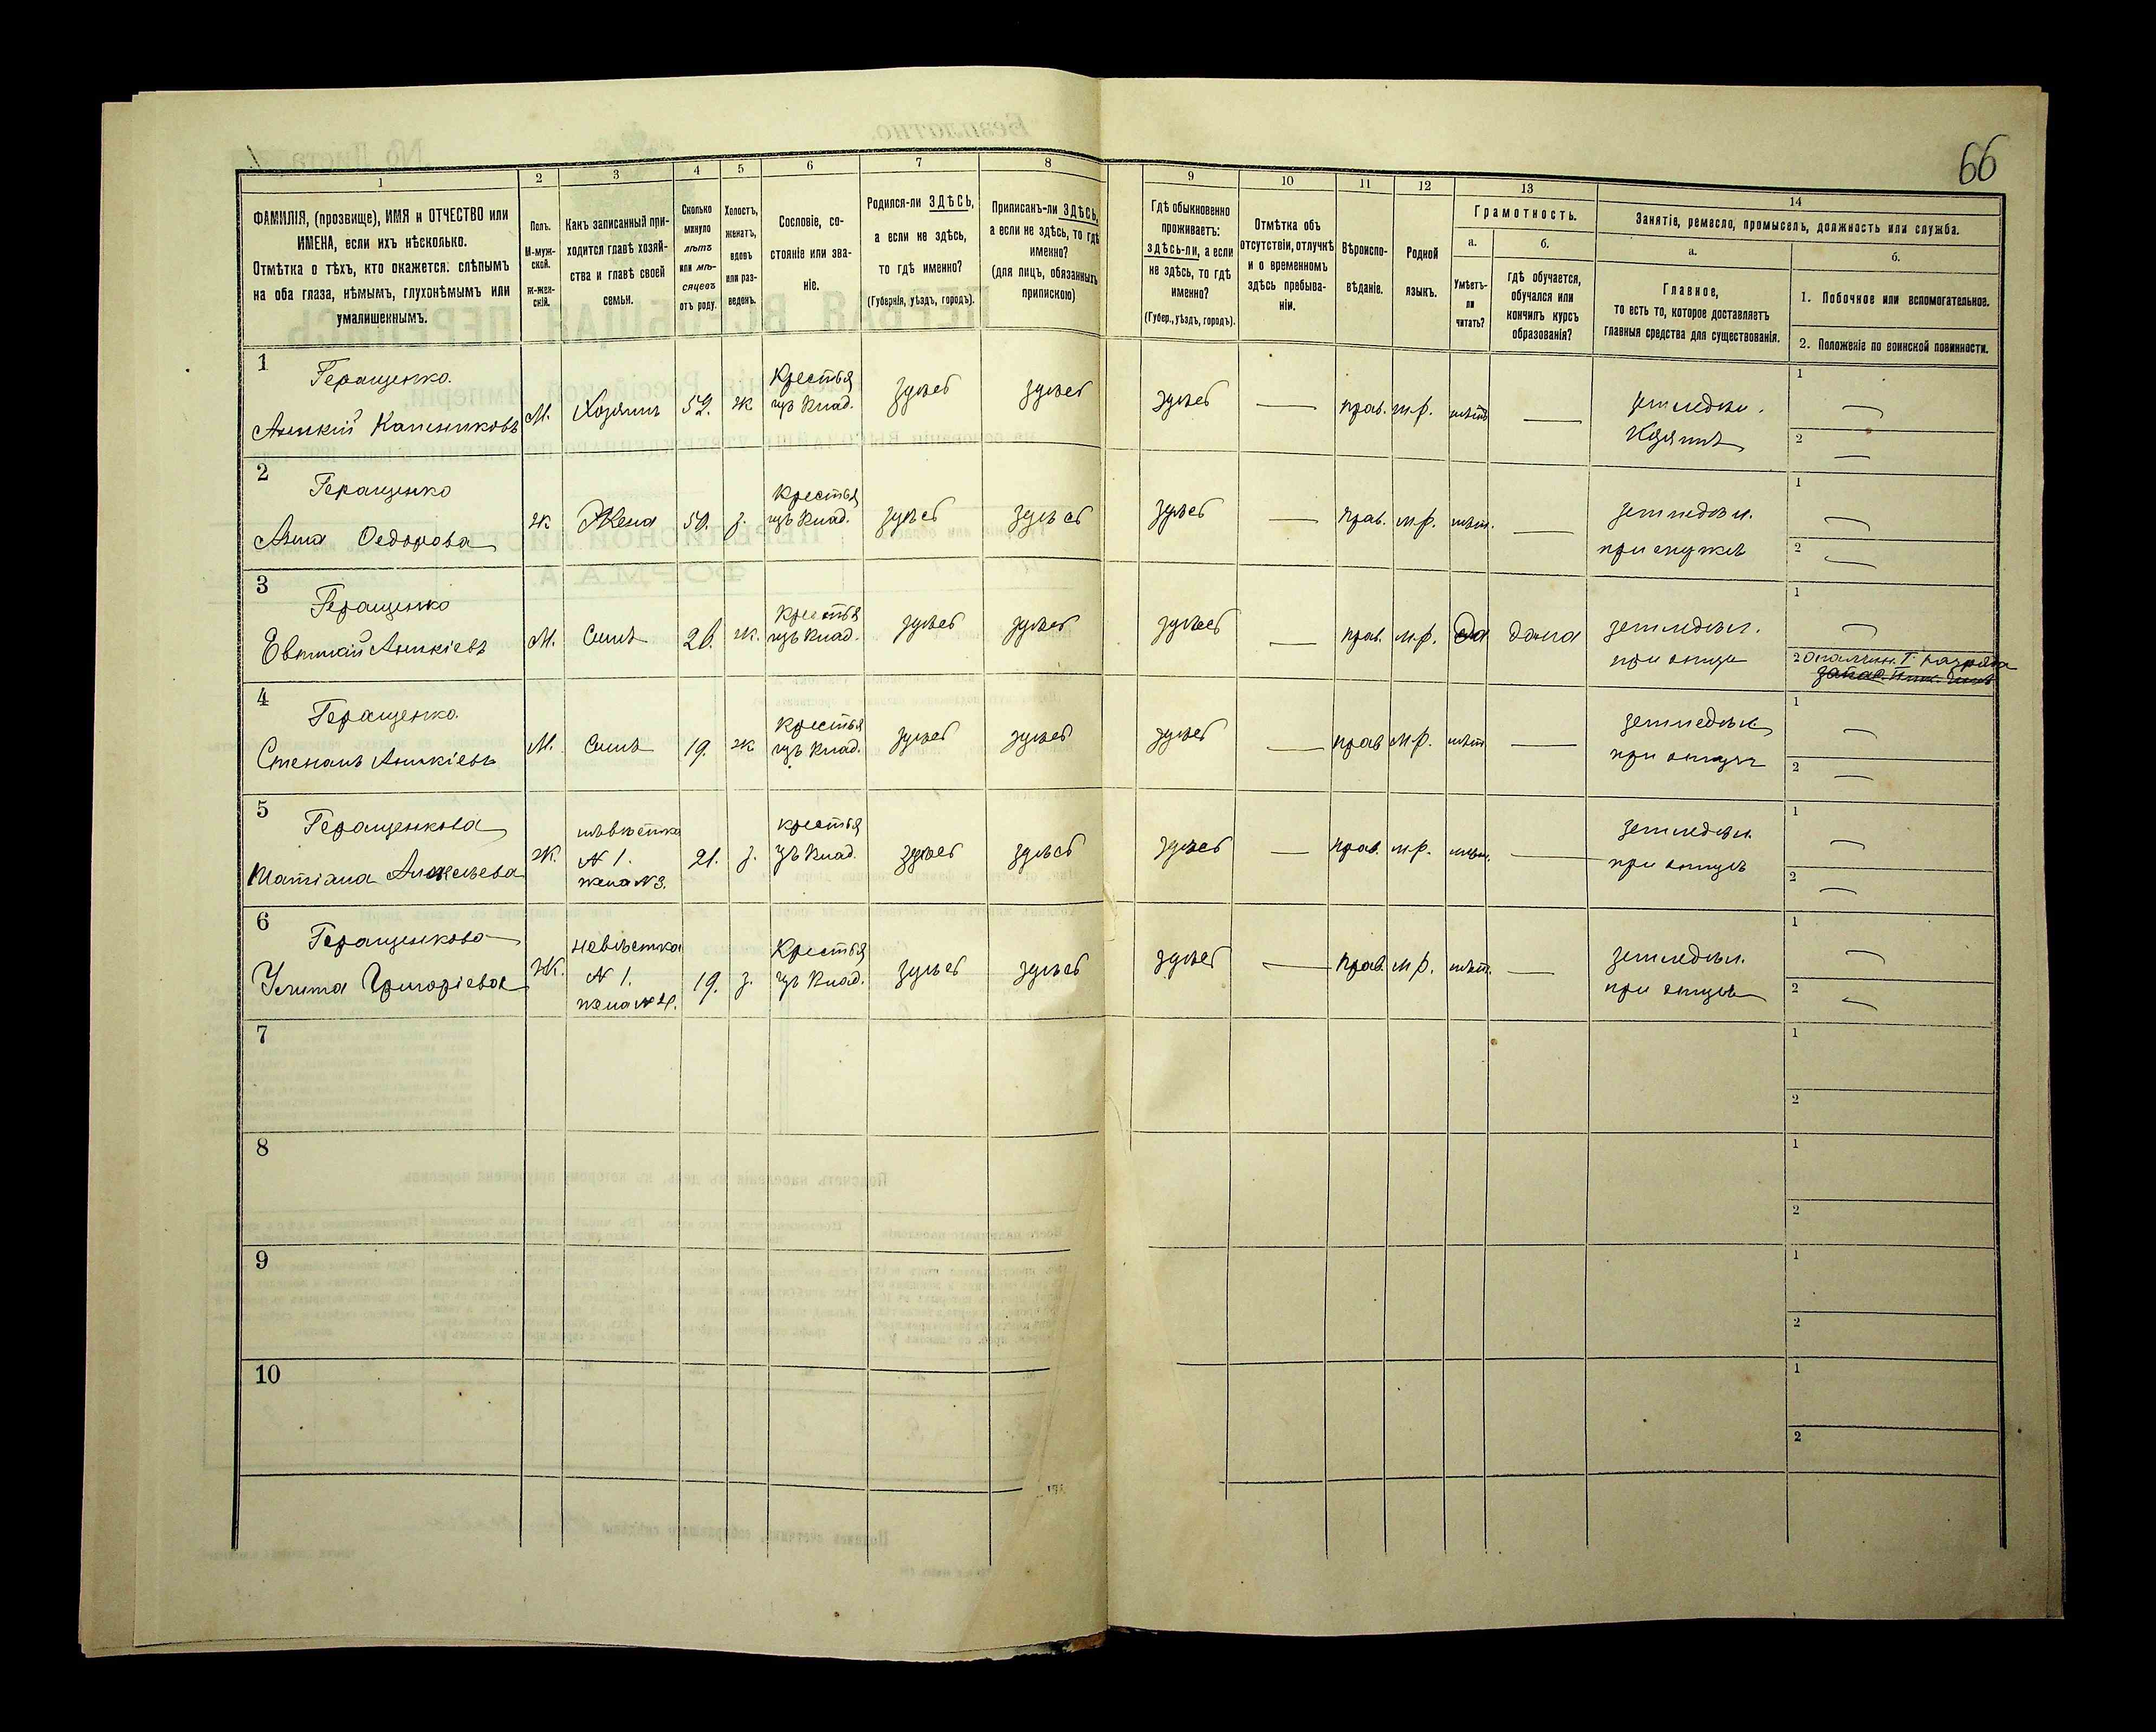 66
1 2 3 4 5 6 7 8 9 10 11 12 13 14
ФАМИЛІЯ, (прозвище), ИМЯ и ОТЧЕСТВО или
ИМЕНА, если ихъ нѣсколько.
Отмѣтка о тѣхъ, кто окажется: слѣпымъ
на оба глаза, нѣмымъ, глухонѣмымъ или
умалишеннымъ.
Полъ.
М-муж-
ской.
Ж-жен-
скій.
Какъ записанный при-
ходится главѣ хозяй-
ства и главѣ своей
семьи.
Сколько
минуло
лѣтъ
или мѣ-
сяцевъ
отъ роду.
Холостъ,
женатъ,
вдовъ
или раз-
веденъ.
Сословіе, со-
стояніе или зва-
ніе.
Родился-ли ЗДѢСЬ,
а если не здѣсь,
то гдѣ именно?
(Губернія, уѣздъ, городъ).
Приписанъ-ли ЗДѢСЬ,
а если не здѣсь, то гдѣ
именно?
(для лицъ, обязанныхъ
припискою)
Гдѣ обыкновенно
проживаетъ:
здѣсь-ли, а если
не здѣсь, то гдѣ
именно?
(Губер., уѣздъ, городъ).
Отмѣтка объ
отсутствіи, отлучкѣ
и о временномъ
здѣсь пребыва-
ніи.
Вѣроиспо-
вѣданіе.
Родной
языкъ.
Грамотность.
а.
Умѣетъ-
ли
читать?
б.
гдѣ обучается,
обучался или
кончилъ курсъ
образованія?
Занятіе, ремесло, промыселъ, должность или служба.
а.
Главное,
то есть то, которое доставляетъ
главныя средства для существованія.
б.
1. Побочное или вспомогательное.
2. Положеніе по воинской повинности.
1
Геращенко
М. Хозяинъ 52. ж Крестья
изъ влад. здѣсь здѣсь здѣсь — прав. м.р. нѣтъ — земледѣл.
Хозяинъ
1 —
2 —
2
Геращенко
Анна Федорова
ж Жена 50. з. Крестья
изъ влад. здѣсь здѣсь здѣсь — прав. м.р. нѣт. — земледѣл.
при мужѣ
1 —
2 —
3
Геращенко
М. Сынъ 26. ж. Крестья
изъ влад. здѣсь здѣсь здѣсь — прав. м.р. Да дома земледѣл.
при отцѣ
1 —
2 Ополчен. I разряда
4
Геращенко
Степанъ Аникіевъ
М. Сынъ 19. ж Крестья
изъ влад. здѣсь здѣсь здѣсь — прав. м.р. нѣт — земледѣл.
при отцѣ
1 —
2 —
5
Геращенкова
Татіана Алексѣева
ж. невѣстка
№ 1.
жена № 3. 21. з. крестья
изъ влад. здѣсь здѣсь здѣсь — прав. м.р. нѣт. — земледѣл.
при отцѣ
1 —
2 —
6
Геращенкова
Улита Григоріева
Ж. невѣстка
№ 1.
жена № 4. 19. з. Крестья
изъ влад. здѣсь здѣсь здѣсь — прав. м.р. нѣт. — земледѣл.
при отцѣ
1 —
2 —
7
1
2
8
1
2
9
1
2
10
1
2